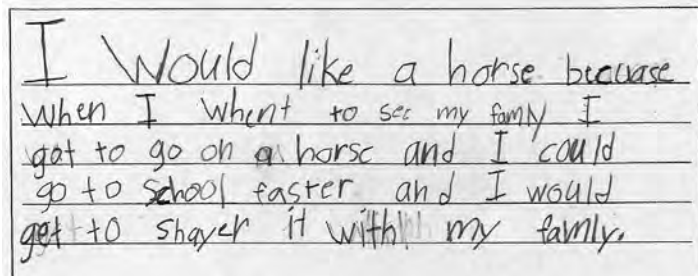 I Would like a horse becuase
when I whent to see my famly I
got to go on a horse and I could
go to school faster and I would
get to shayer it with my famly.